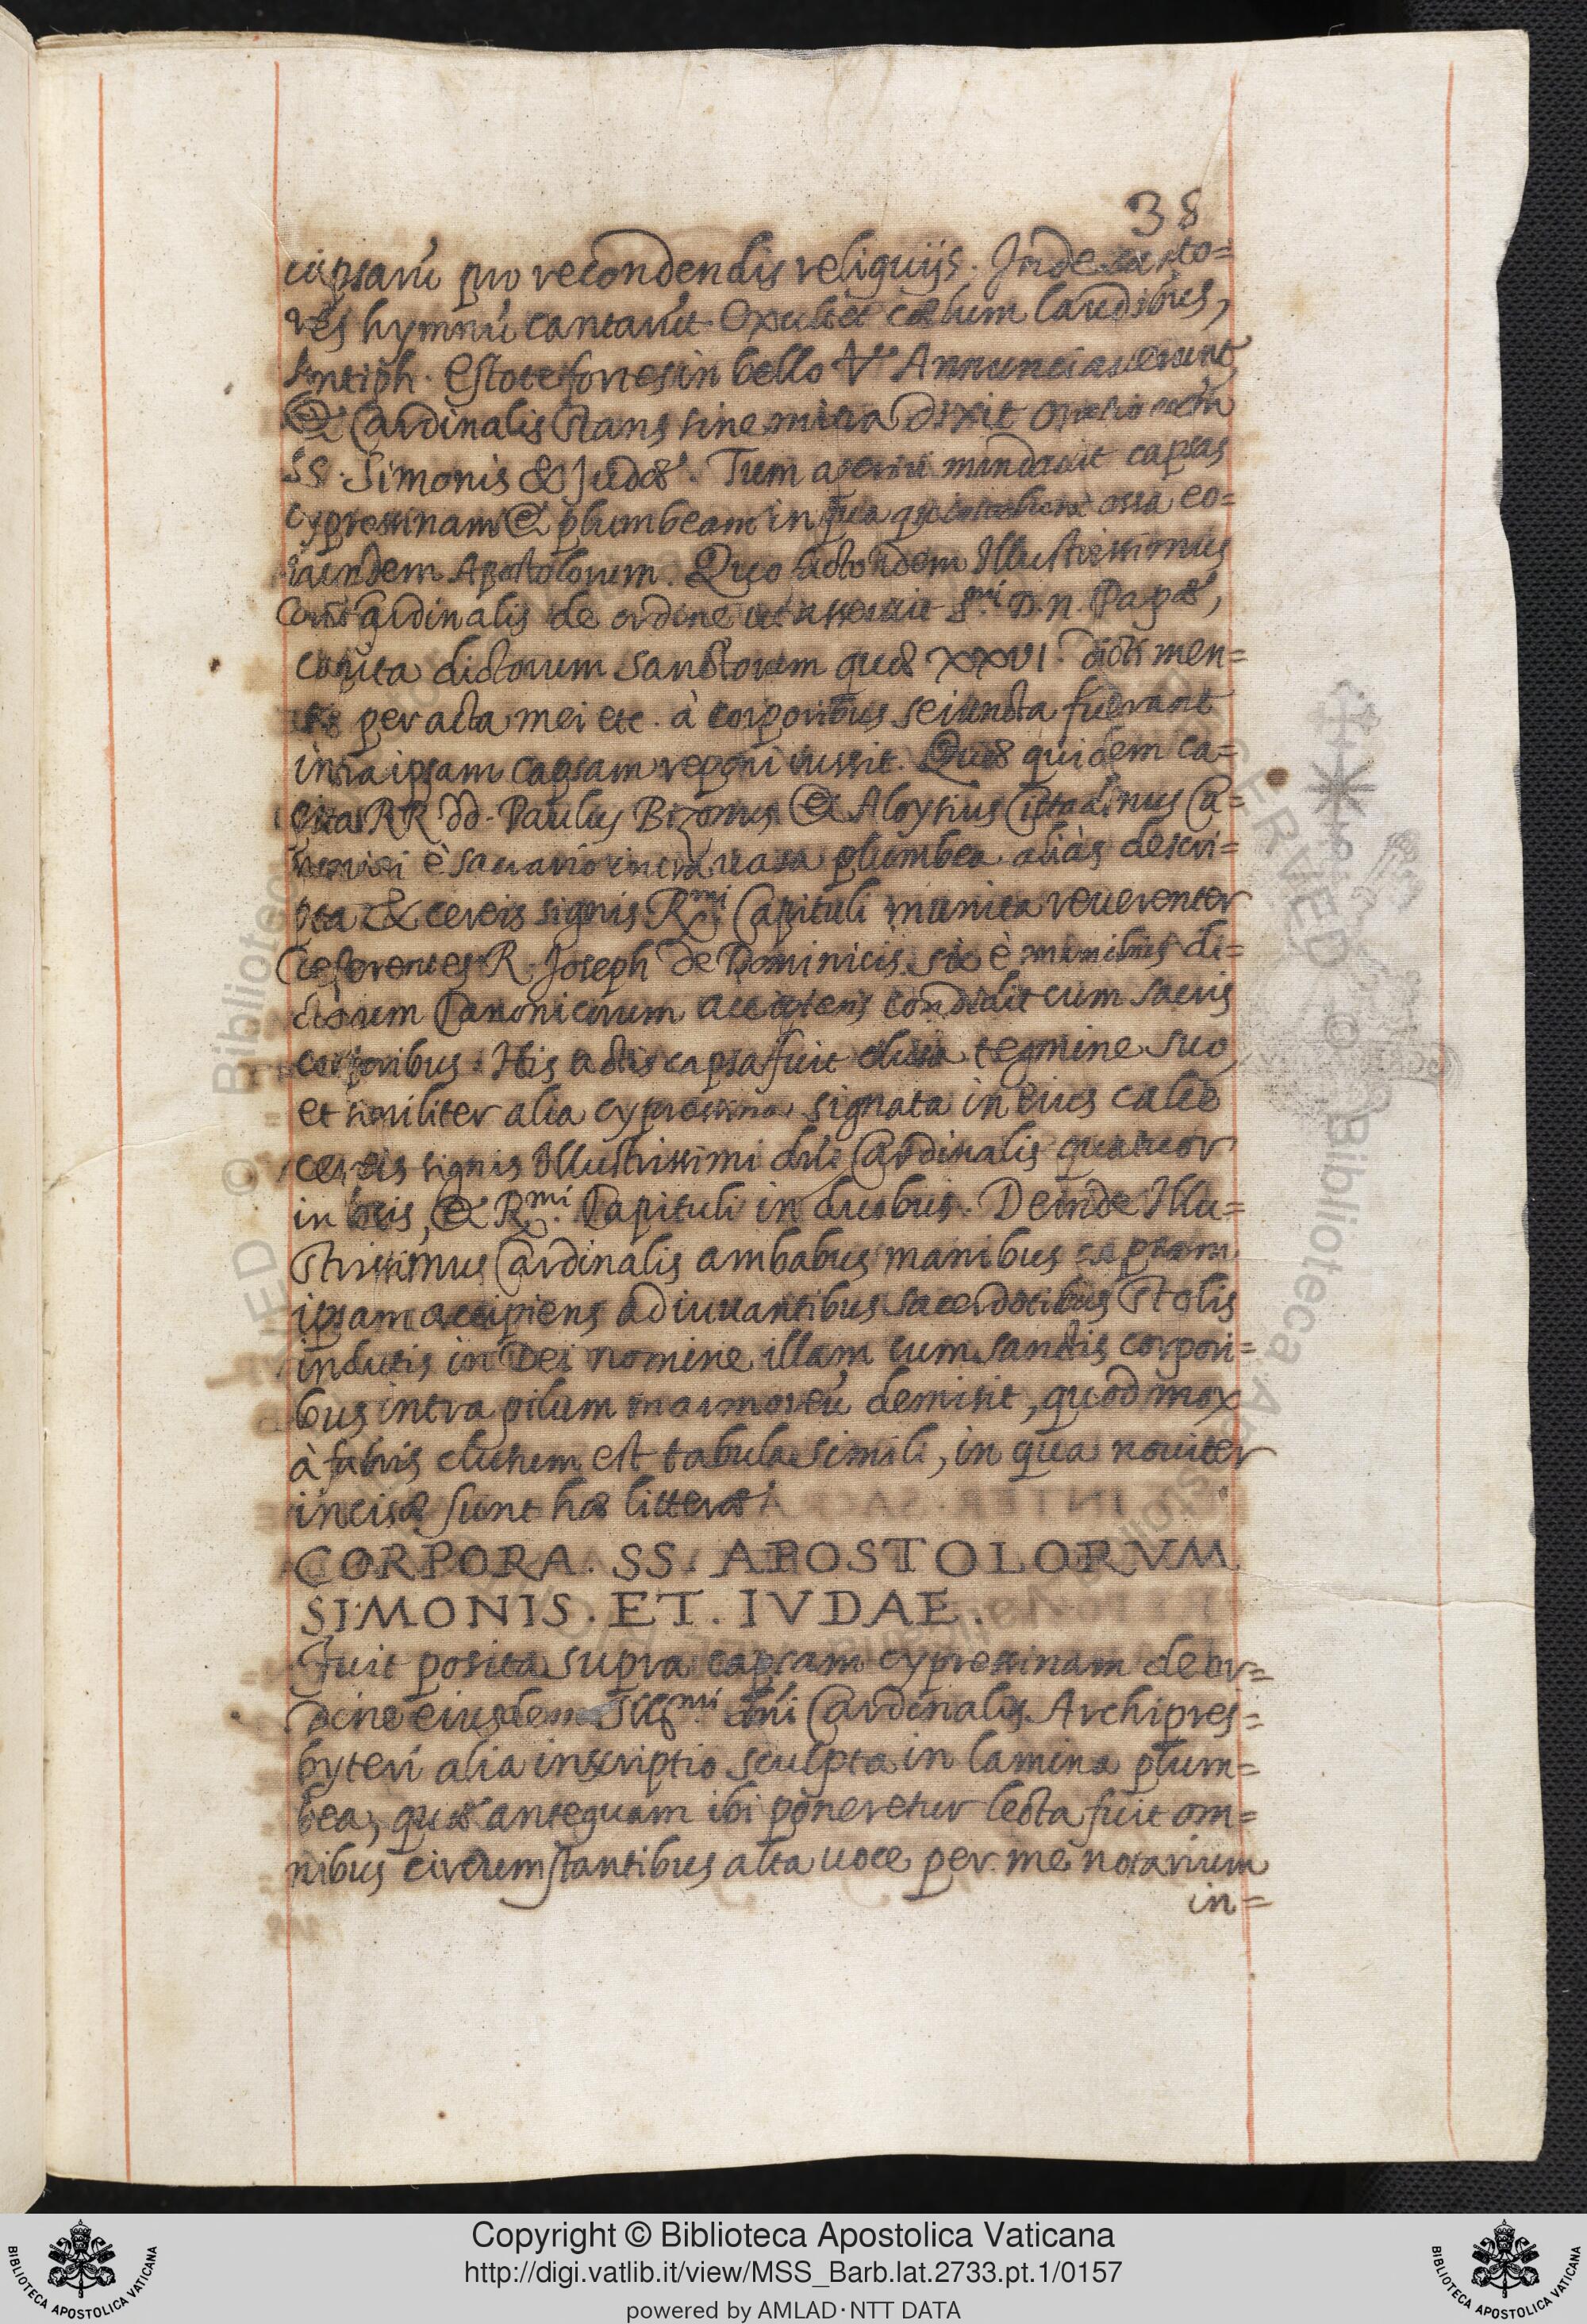 38
capsarū pro recondendis reliquijs. Inde canto=
res hymnū cantarūt Exultet cœlum laudibus,
Antiph. Estote fortes in bello V. Annunciauerunt,
& Cardinalis stans sine mitra dixit
SS. Simonis & Judæ. Tum aperiri mandauit capsas
cypressinam & plumbeam in qua ossa eo=
rundem Apostolorum. Quo facto idem Illustrissimus
Cardinalis de ordine ut asseruit S.mi D. n. Papæ,
capita dictorum Sanctorum quæ XXVI. dicti men=
per acta mei etc. à corporibus seiuncta fuerant
intra ipsam capsam reponi iussit. Quæ quidem ca=
pita RR dd. Paulus Bizonus & Aloysius Cittadinus Ca=
è sacrario intra uasa plumbea aliàs descri=
pta & cereis signis R.mi Capituli munita reuerenter
deferentes R. Joseph de Dominicis sic è manibus di=
ctorum Canonicorum accipiens condidit cum sacris
corporibus. His actis capsa fuit clusa tegmine suo,
et similiter alia cypressina signata in eius calce
cereis signis Illustrissimi dñi Cardinalis quatuor
in locis, & R.mi Capituli in duobus. Deinde Illu=
strissimus Cardinalis ambabus manibus capsam
ipsam accipiens adiuuantibus sacerdotibus stolis
indutis in Dei nomine illam cum sanctis corpori=
bus intra pilum marmoreū demisit, quod mox
à fabris clusum est tabula simili, in qua nouiter
incisæ sunt hæ litteræ
CORPORA. SS. APOSTOLORVM
SIMONIS. ET. IVDAE.
Fuit posita supra capsam cypressinam de or=
dine eiusdem Ill.mi dñi Cardinalis Archipres=
byteri alia inscriptio sculpta in lamina plum=
bea, quæ antequam ibi poneretur lecta fuit om=
nibus circumstantibus alta uoce per me notarium
in=
Copyright © Biblioteca Apostolica Vaticana
http://digi.vatlib.it/view/MSS_Barb.lat.2733.pt.1/0157
powered by AMLAD·NTT DATA
BIBLIOTECA APOSTOLICA VATICANA
BIBLIOTECA APOSTOLICA VATICANA